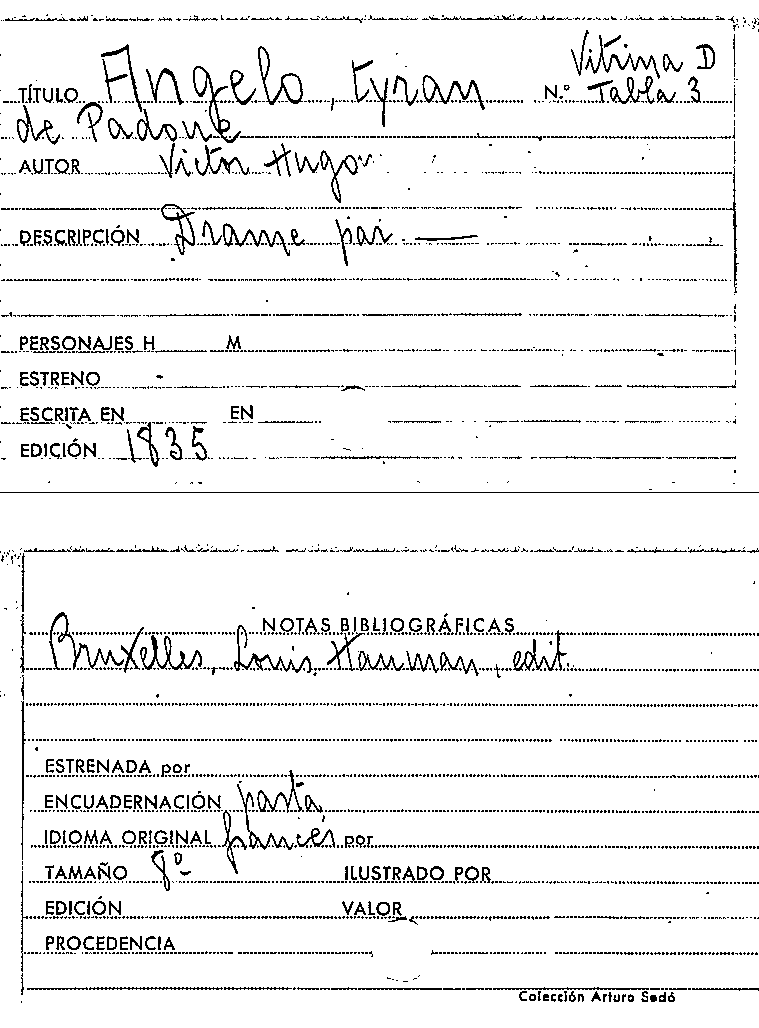 Vitrina D
TÍTULO Angelo, tyran N.º Tabla 3
de Padoue
AUTOR Victor Hugo
DESCRIPCIÓN Drame par —
PERSONAJES H M
ESTRENO
ESCRITA EN EN
EDICIÓN 1835
NOTAS BIBLIOGRÁFICAS
Bruxelles, Louis Hauman, edit.
ESTRENADA por
ENCUADERNACIÓN pasta
IDIOMA ORIGINAL francés por
TAMAÑO 8º ILUSTRADO POR
EDICIÓN VALOR
PROCEDENCIA
Colección Arturo Sedó